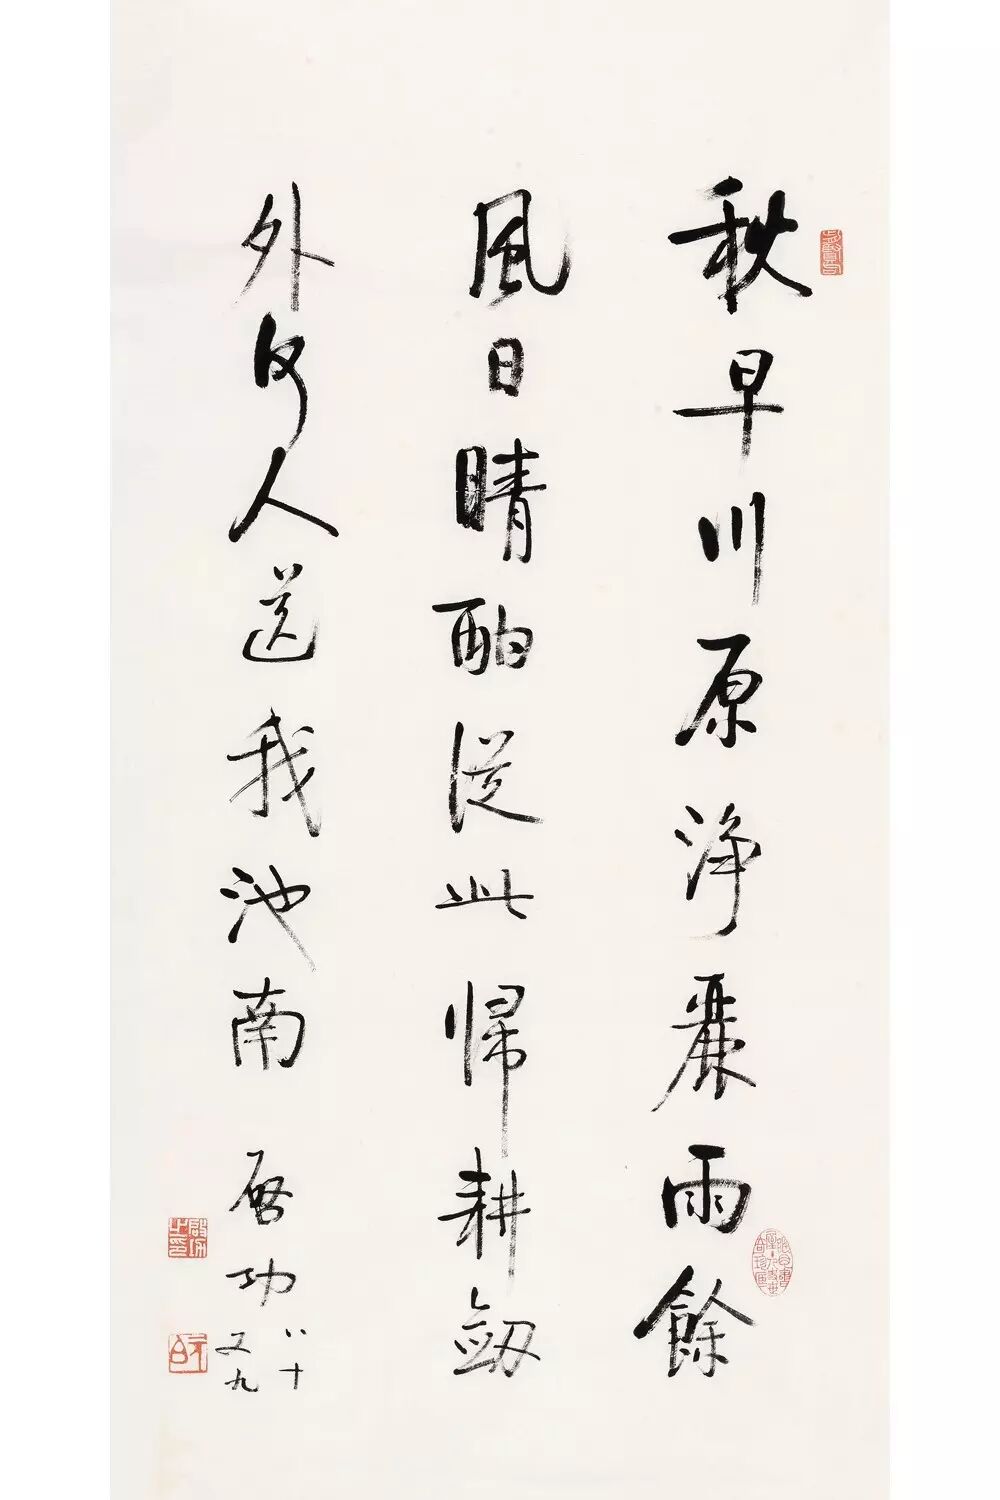 秋早川原淨麗雨餘
風日晴酣從此歸耕劔
外何人送我池南
啓功
八十
又九